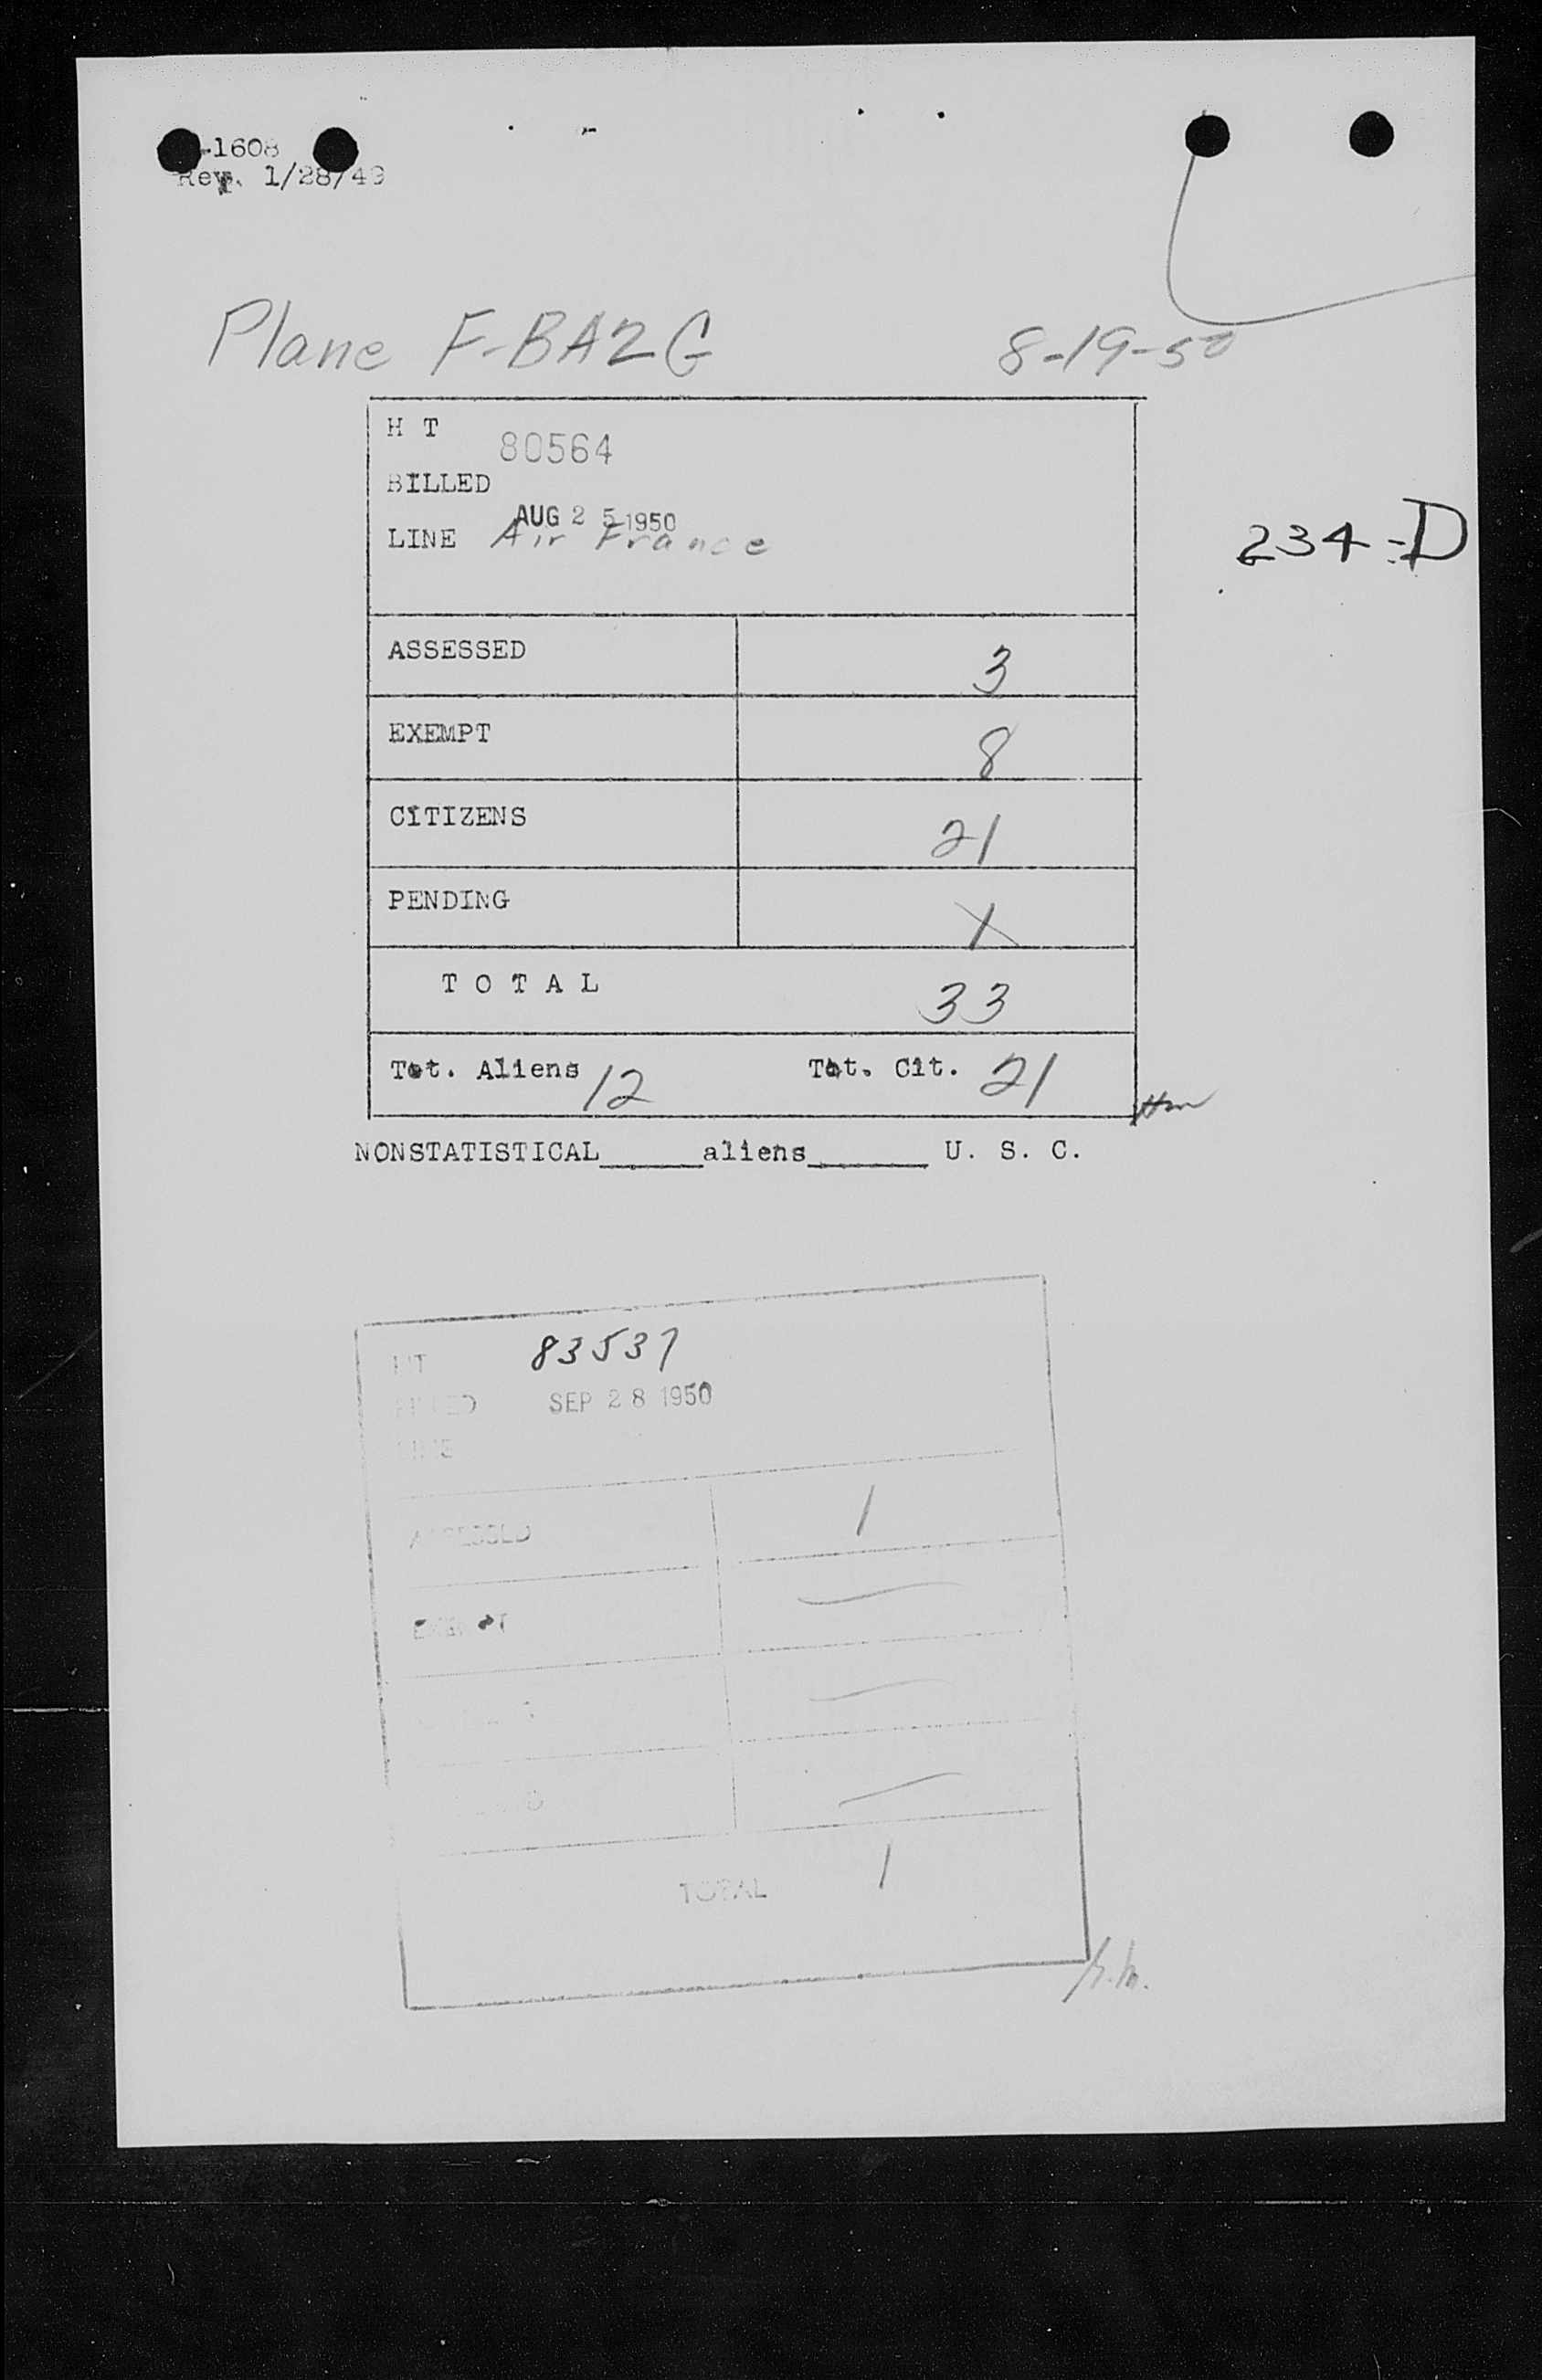 -1608
Rev. 1/28/49
Plane F-BA2G 8-19-50
H T 80564
BILLED
AUG 25 1950
LINE Air France
234-D
ASSESSED 3
EXEMPT 8
CITIZENS 21
PENDING X
TOTAL 33
Tot. Aliens 12 Tot. Cit. 21
NONSTATISTICAL_____aliens______ U. S. C.
HT 83537
BILLED SEP 28 1950
LINE
ASSESSED 1
EXEMPT —
—
—
TOTAL 1